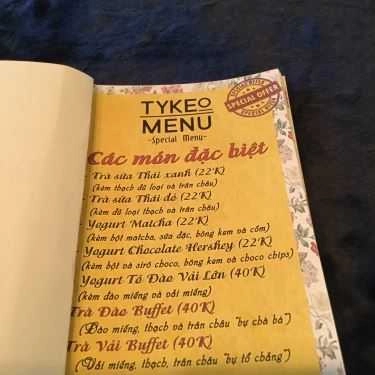 TYKEO
MENU
~Special Menu~
SPECIAL OFFER
Các món đặc biệt
- Trà sữa Thái xanh (22K)
(kèm thạch đủ loại và trân châu)
- Trà sữa Thái đỏ (22K)
(kèm đủ loại thạch và trân châu)
- Yogurt Matcha (22K)
(kèm bột matcha, sữa đặc, bông kem và cốm)
- Yogurt Chocolate Hershey (22K)
(kèm bột và sirô choco, bông kem và choco chips)
- Yogurt Tô Đào Vải Lớn (40K)
(kèm đào miếng và vải miếng)
Trà Đào Buffet (40K)
(Đào miếng, thạch và trân châu "bự chà bá")
Trà Vải Buffet (40K)
(Vải miếng, thạch và trân châu "bự tổ chảng")